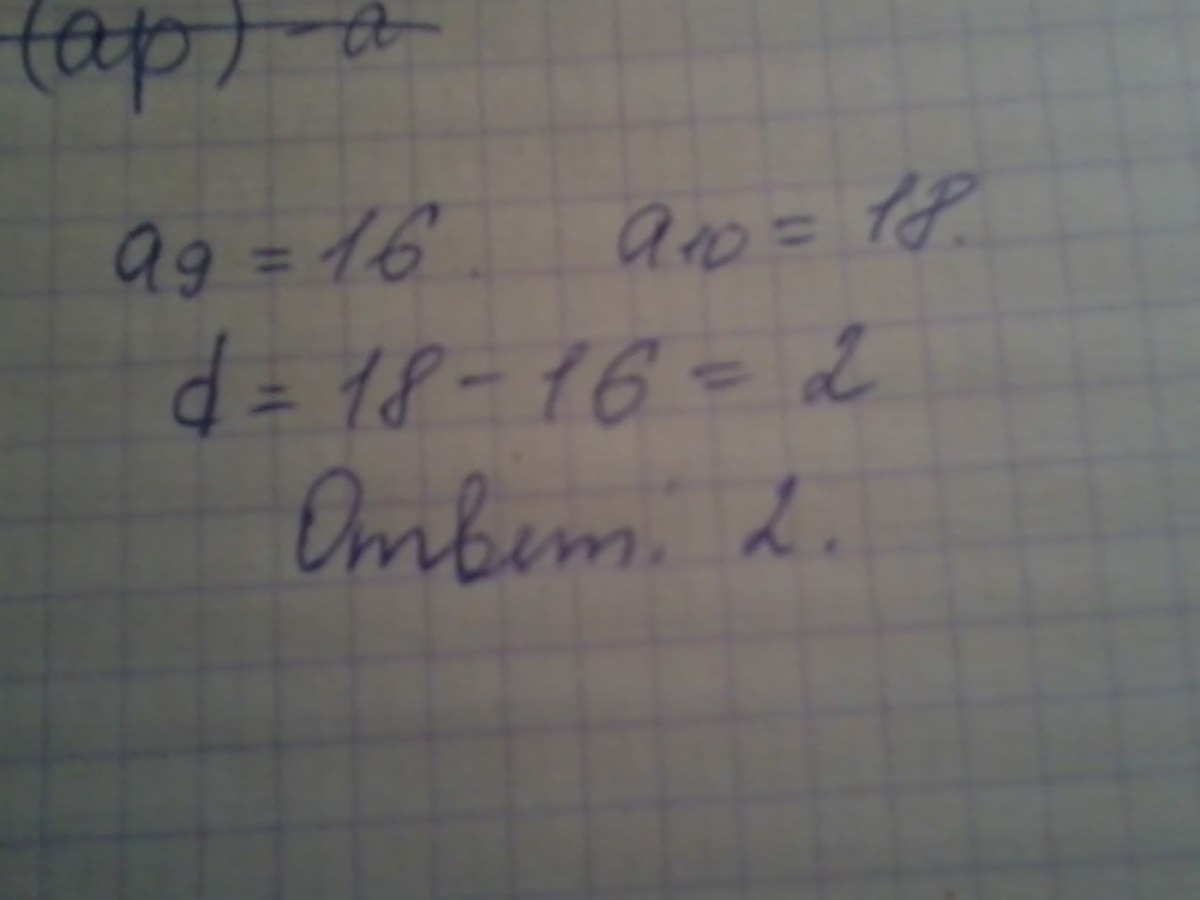 (ap) - a
a9 = 16. a10 = 18.
d = 18 - 16 = 2
Ответ: 2.